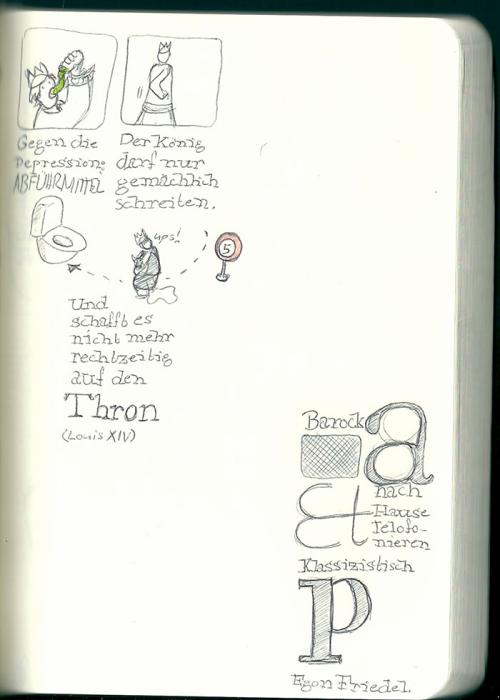 Gegen die
Depression:
ABFÜHRMITTEL
Der König
darf nur
gemächlich
schreiten.
ups!
5
Und
schafft es
nicht mehr
rechtzeitig
auf den
Thron
(Louis XIV)
Barock
a
Et
nach
Hause
telofo-
nieren
Klassizistisch
p
Egon Friedel.